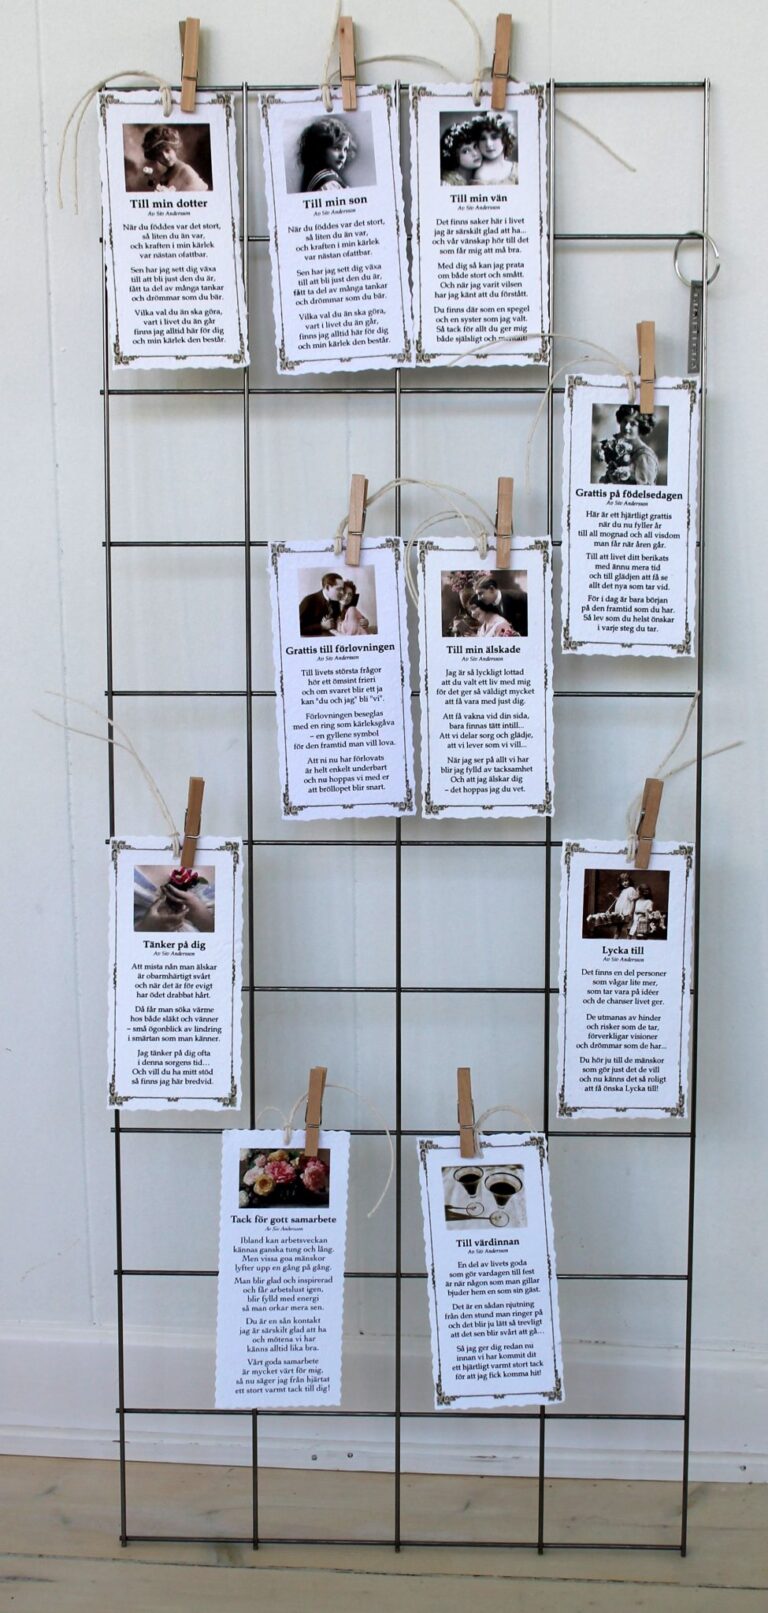 Till min dotter
Av Siv Andersson
När du föddes var det stort,
så liten du än var,
och kraften i min kärlek
var nästan ofattbar.
Sen har jag sett dig växa
till att bli just den du är,
fått ta del av många tankar
och drömmar som du bär.
Vilka val du än ska göra,
vart i livet du än går
finns jag alltid här för dig
och min kärlek den består.
Till min son
Av Siv Andersson
När du föddes var det stort,
så liten du än var,
och kraften i min kärlek
var nästan ofattbar.
Sen har jag sett dig växa
till att bli just den du är,
fått ta del av många tankar
och drömmar som du bär.
Vilka val du än ska göra,
vart i livet du än går,
finns jag alltid här för dig
och min kärlek den består.
Till min vän
Av Siv Andersson
Det finns saker här i livet
jag är särskilt glad att ha...
och vår vänskap hör till det
som får mig att må bra.
Med dig så kan jag prata
om både stort och smått.
Och när jag varit vilsen
har jag känt att du förstått.
Du finns där som en spegel
och en syster som jag valt.
Så tack för allt du ger mig
både själsligt och mentalt!
Grattis på födelsedagen
Av Siv Andersson
Här är ett hjärtligt grattis
när du nu fyller år
till all mognad och all visdom
man får när åren går.
Till att livet ditt berikats
med ännu mera tid
och till glädjen att få se
allt det nya som tar vid.
För i dag är bara början
på den framtid som du har.
Så lev som du helst önskar
i varje steg du tar.
Grattis till förlovningen
Av Siv Andersson
Till livets största frågor
hör ett ömsint frieri
och om svaret blir ett ja
kan "du och jag" bli "vi".
Förlovningen beseglas
med en ring som kärleksgåva
– en gyllene symbol
för den framtid man vill lova.
Att ni nu har förlovats
är helt enkelt underbart
och nu hoppas vi med er
att bröllopet blir snart.
Till min älskade
Av Siv Andersson
Jag är så lyckligt lottad
att du valt ett liv med mig
för det ger så väldigt mycket
att få vara med just dig.
Att få vakna vid din sida,
bara finnas tätt intill...
Att vi delar sorg och glädje,
att vi lever som vi vill...
När jag ser på allt vi har
blir jag fylld av tacksamhet
Och att jag älskar dig
– det hoppas jag du vet.
Tänker på dig
Av Siv Andersson
Att mista nån man älskar
är obarmhärtigt svårt
och när det är för evigt
har ödet drabbat hårt.
Då får man söka värme
hos både släkt och vänner
– små ögonblick av lindring
i smärtan som man känner.
Jag tänker på dig ofta
i denna sorgens tid...
Och vill du ha mitt stöd
så finns jag här bredvid.
Lycka till
Av Siv Andersson
Det finns en del personer
som vågar lite mer,
som tar vara på idéer
och de chanser livet ger.
De utmanas av hinder
och risker som de tar,
förverkligar visioner
och drömmar som de har...
Du hör ju till de mänskor
som gör just det de vill
och nu känns det så roligt
att få önska Lycka till!
Tack för gott samarbete
Av Siv Andersson
Ibland kan arbetsveckan
kännas ganska tung och lång.
Men vissa goa mänskor
lyfter upp en gång på gång.
Man blir glad och inspirerad
och får arbetslust igen,
blir fylld med energi
så man orkar mera sen.
Du är en sån kontakt
jag är särskilt glad att ha
och mötena vi har
känns alltid lika bra.
Vårt goda samarbete
är mycket värt för mig,
så nu säger jag från hjärtat
ett stort varmt tack till dig!
Till värdinnan
Av Siv Andersson
En del av livets goda
som gör vardagen till fest
är när någon som man gillar
bjuder hem en som sin gäst.
Det är en sådan njutning
från den stund man ringer på
och det blir ju lätt så trevligt
att det sen blir svårt att gå...
Så jag ger dig redan nu
innan vi har kommit dit
ett hjärtligt varmt stort tack
för att jag fick komma hit!